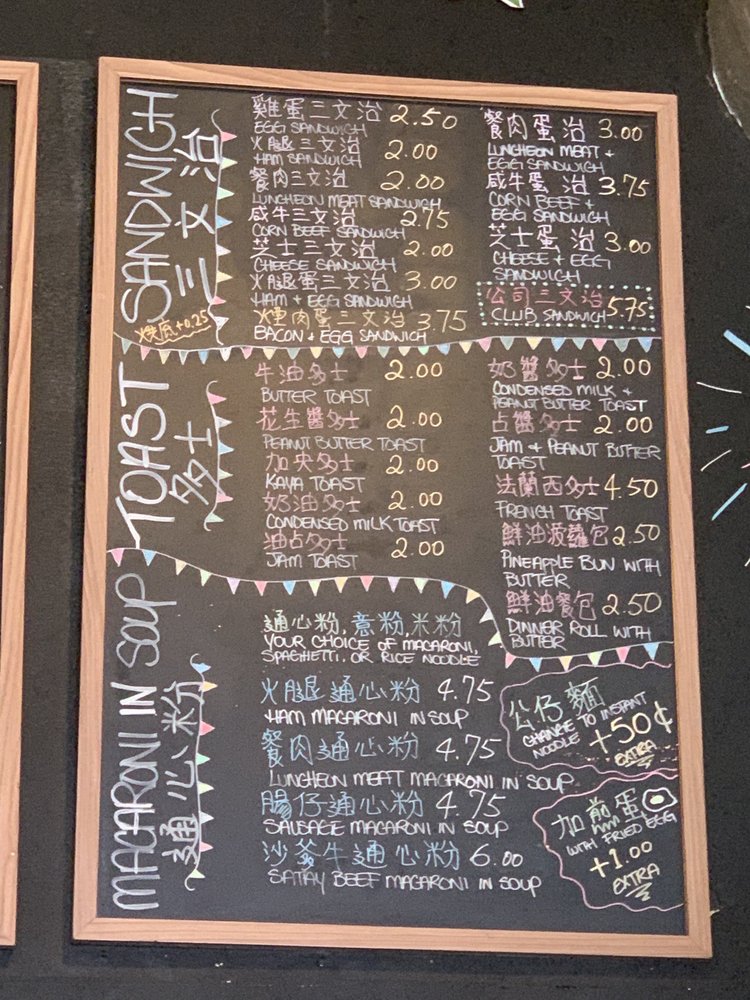 SANDWICH
三文治
烘底+0.25
雞蛋三文治 2.50
EGG SANDWICH
火腿三文治 2.00
HAM SANDWICH
餐肉三文治 2.00
LUNCHEON MEAT SANDWICH
咸牛三文治 2.75
CORN BEEF SANDWICH
芝士三文治 2.00
CHEESE SANDWICH
火腿蛋三文治 3.00
HAM + EGG SANDWICH
煙肉蛋三文治 3.75
BACON + EGG SANDWICH
餐肉蛋治 3.00
LUNCHEON MEAT +
EGG SANDWICH
咸牛蛋治 3.75
CORN BEEF +
EGG SANDWICH
芝士蛋治 3.00
CHEESE + EGG
SANDWICH
公司三文治 5.75
CLUB SANDWICH
TOAST
多士
牛油多士 2.00
BUTTER TOAST
花生醬多士 2.00
PEANUT BUTTER TOAST
加央多士 2.00
KAYA TOAST
奶油多士 2.00
CONDENSED MILK TOAST
油占多士 2.00
JAM TOAST
奶醬多士 2.00
CONDENSED MILK +
PEANUT BUTTER TOAST
占醬多士 2.00
JAM + PEANUT BUTTER
TOAST
法蘭西多士 4.50
FRENCH TOAST
鮮油菠蘿包 2.50
PINEAPPLE BUN WITH
BUTTER
鮮油餐包 2.50
DINNER ROLL WITH
BUTTER
MACARONI IN SOUP
通心粉
通心粉,意粉,米粉
YOUR CHOICE OF MACARONI,
SPAGHETTI, OR RICE NOODLE
火腿通心粉 4.75
HAM MACARONI IN SOUP
餐肉通心粉 4.75
LUNCHEON MEAT MACARONI IN SOUP
腸仔通心粉 4.75
SAUSAGE MACARONI IN SOUP
沙爹牛通心粉 6.00
SATAY BEEF MACARONI IN SOUP
公仔麵
CHANGE TO INSTANT
NOODLE +50¢
EXTRA
加煎蛋
WITH FRIED EGG
+1.00
EXTRA